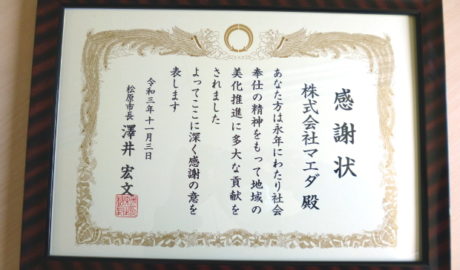 感謝状
株式会社マエダ 殿
あなた方は永年にわたり社会
奉仕の精神をもって地域の
美化推進に多大な貢献を
されました
よってここに深く感謝の意を
表します
令和三年十一月三日
松原市長 澤井 宏文